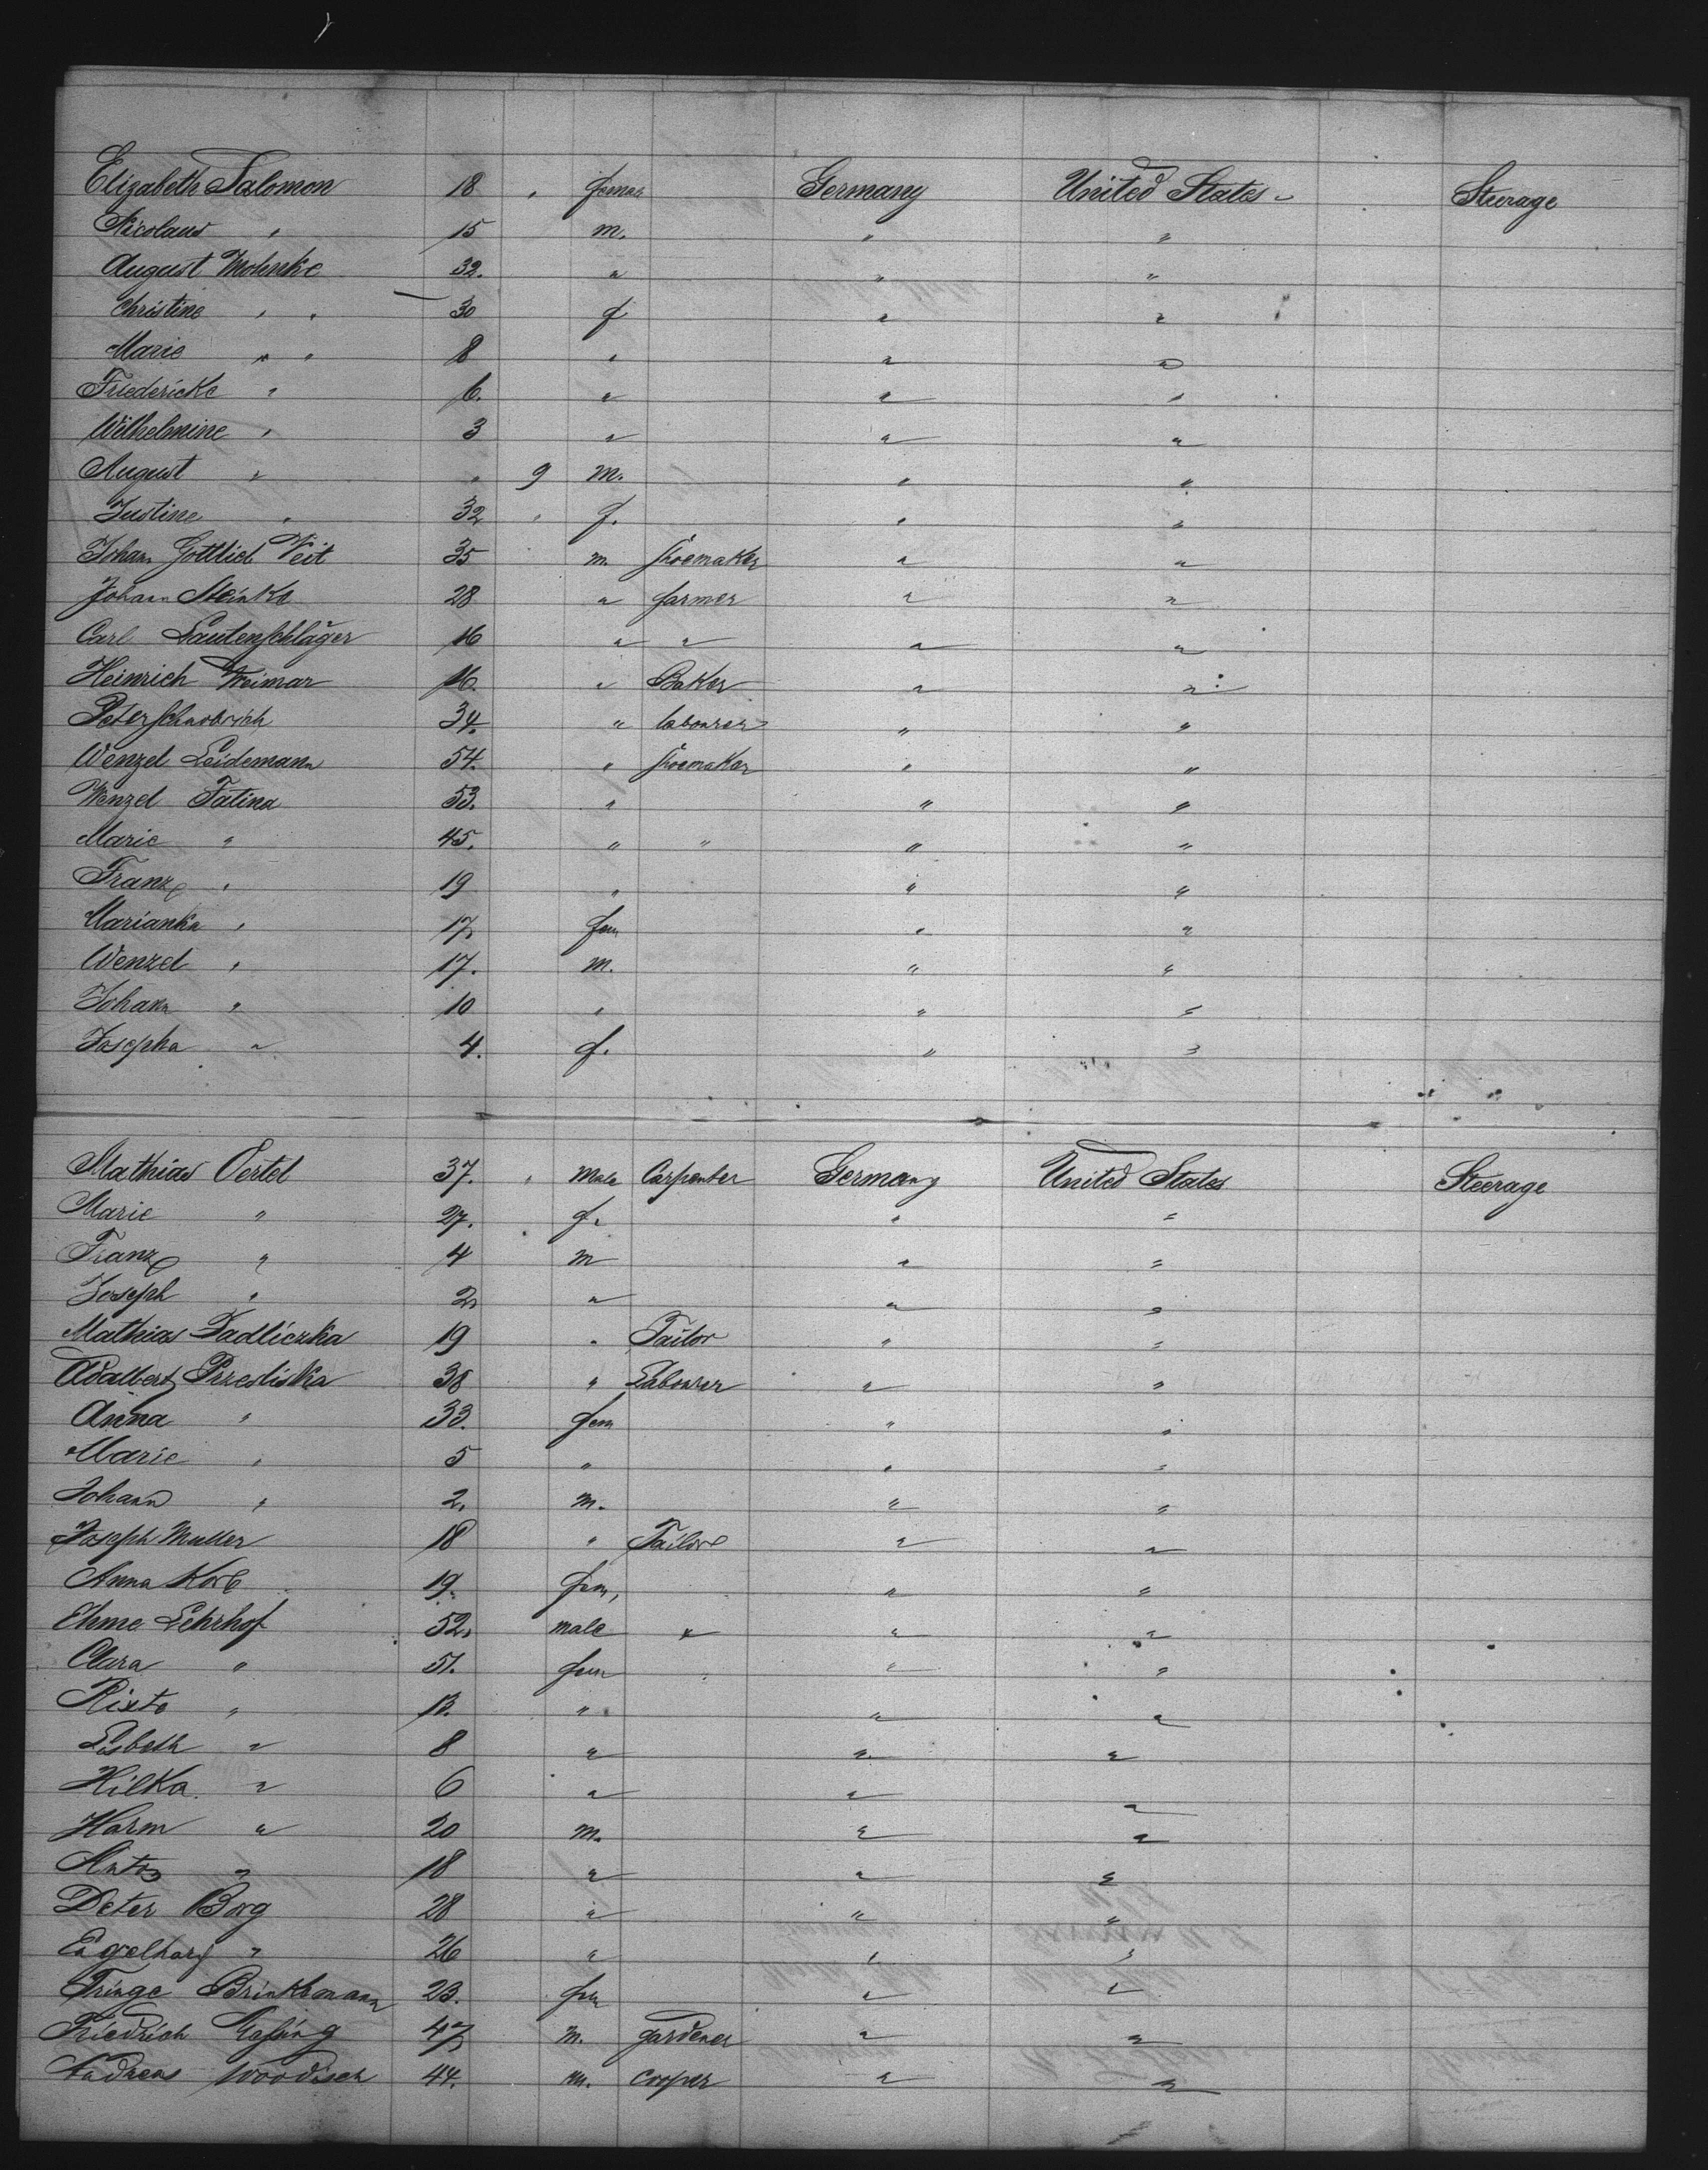 Elizabeth Salomon 18 " female Germany United States " Steerage
Nicolaus " 15 m. " "
August Mohnke 32. " " "
Christine " " 30 f " "
Marie " " 8 " " "
Friedericke " 6. " " "
Wilhelmine " 3 " " "
August " " 9 m. " "
Justine " 32 " f. " "
Johann Gottlieb Veit 35 m. shoemaker " "
Johann Steinke 28 " farmer " "
Carl Lautenschläger 16 " " " "
Heinrich Weimar 16. " Baker " "
Peter 34. " labourer " "
Wenzel Leidemann 54. " shoemaker " "
Wenzel Fatina 53. " " "
Marie " 45. " " " "
Franz " 19 " " "
Marianka " 17. fem " "
Wenzel " 17. m. " "
Johann " 10 " " "
Josepha " 4. f. " "
Mathias Oertel 37. " Male Carpenter Germany United States Steerage
Marie " 27. f. " "
Franz " 4 m " "
Joseph " 2 " " "
Mathias 19 " Tailor " "
Adalbert 38 " Labourer " "
Anna " 33. fem " "
Marie " 5 " " "
Johann " 2. m. " "
Joseph Muller 18 " Tailor " "
Anna Korb 19. fem, " "
Ehme Lehrhof 52. male " " "
Clara " 51. fem " "
Rixte " 13. " " "
Lisbeth " 8 " " "
Hilka " 6 " " "
Harm " 20 m. " "
Anton " 18 " " "
Peter Borg 28 " " "
" 26 " " "
Tringe Brinkkmann 23. fem " "
Friedrich 47 m. gardener " "
Andreas Woodisch 44. m. cooper " "